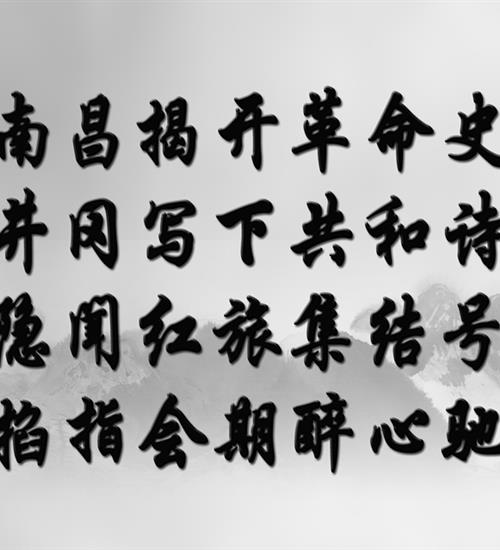 南昌揭开革命史
井冈写下共和诗
隐闻红旅集结号
掐指会期醉心驰